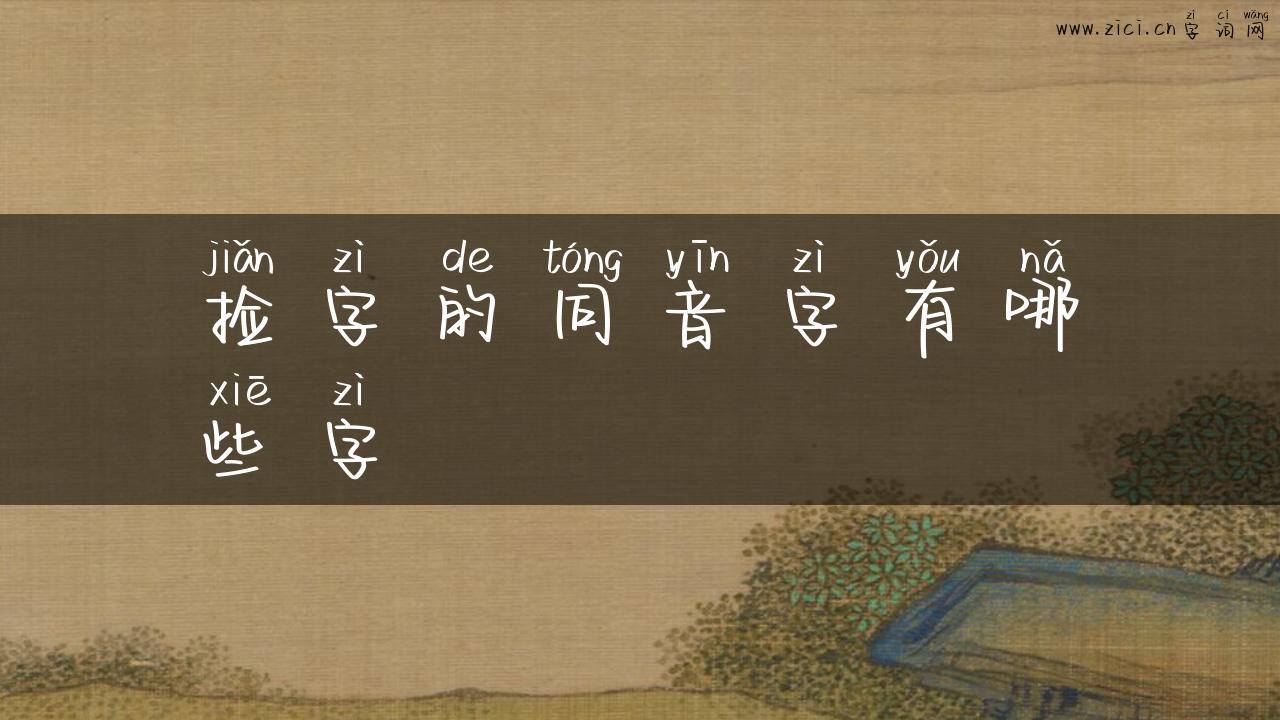 zì cí wǎng
www.zici.cn 字 词 网
jiǎn zì de tóng yīn zì yǒu nǎ
捡 字 的 同 音 字 有 哪
xiē zì
些 字